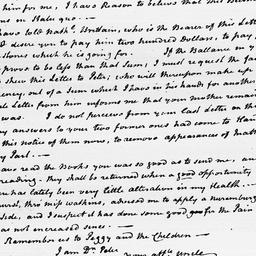 him for me, I have Reason to believe that this
in Statu quo. —
have told Nath.^l Undain, who is the Bearer of this Lette
I desire you to pay him two hundred Dollars, to pay
Stones which he is going for: If the Ballance in y
prove to be less than that Sum, I must request the fa
shew this Letter to Peter; who will thereupon make up
ency, out of a Sum which I have in his hands for another
late Letter from him informs me that your mother remain
was. I do not perceive from your last Letter on the
my answers to your two former ones had come to Han
this notice of them now, to remove appearances of
my Part. —
have read the Books you was so good as to send me, an
reading. they shall be returned when a good opportunity
ere has lately been very little alteration in my Health.
hurst, thro' miss watkins, advised me to apply a Nuremburg
side, and I suspect it has done some good for the Pain
as not encreased since. —
Remember us to Peggy and the Children —
I am Dr. Peter
your aff.^te Uncle